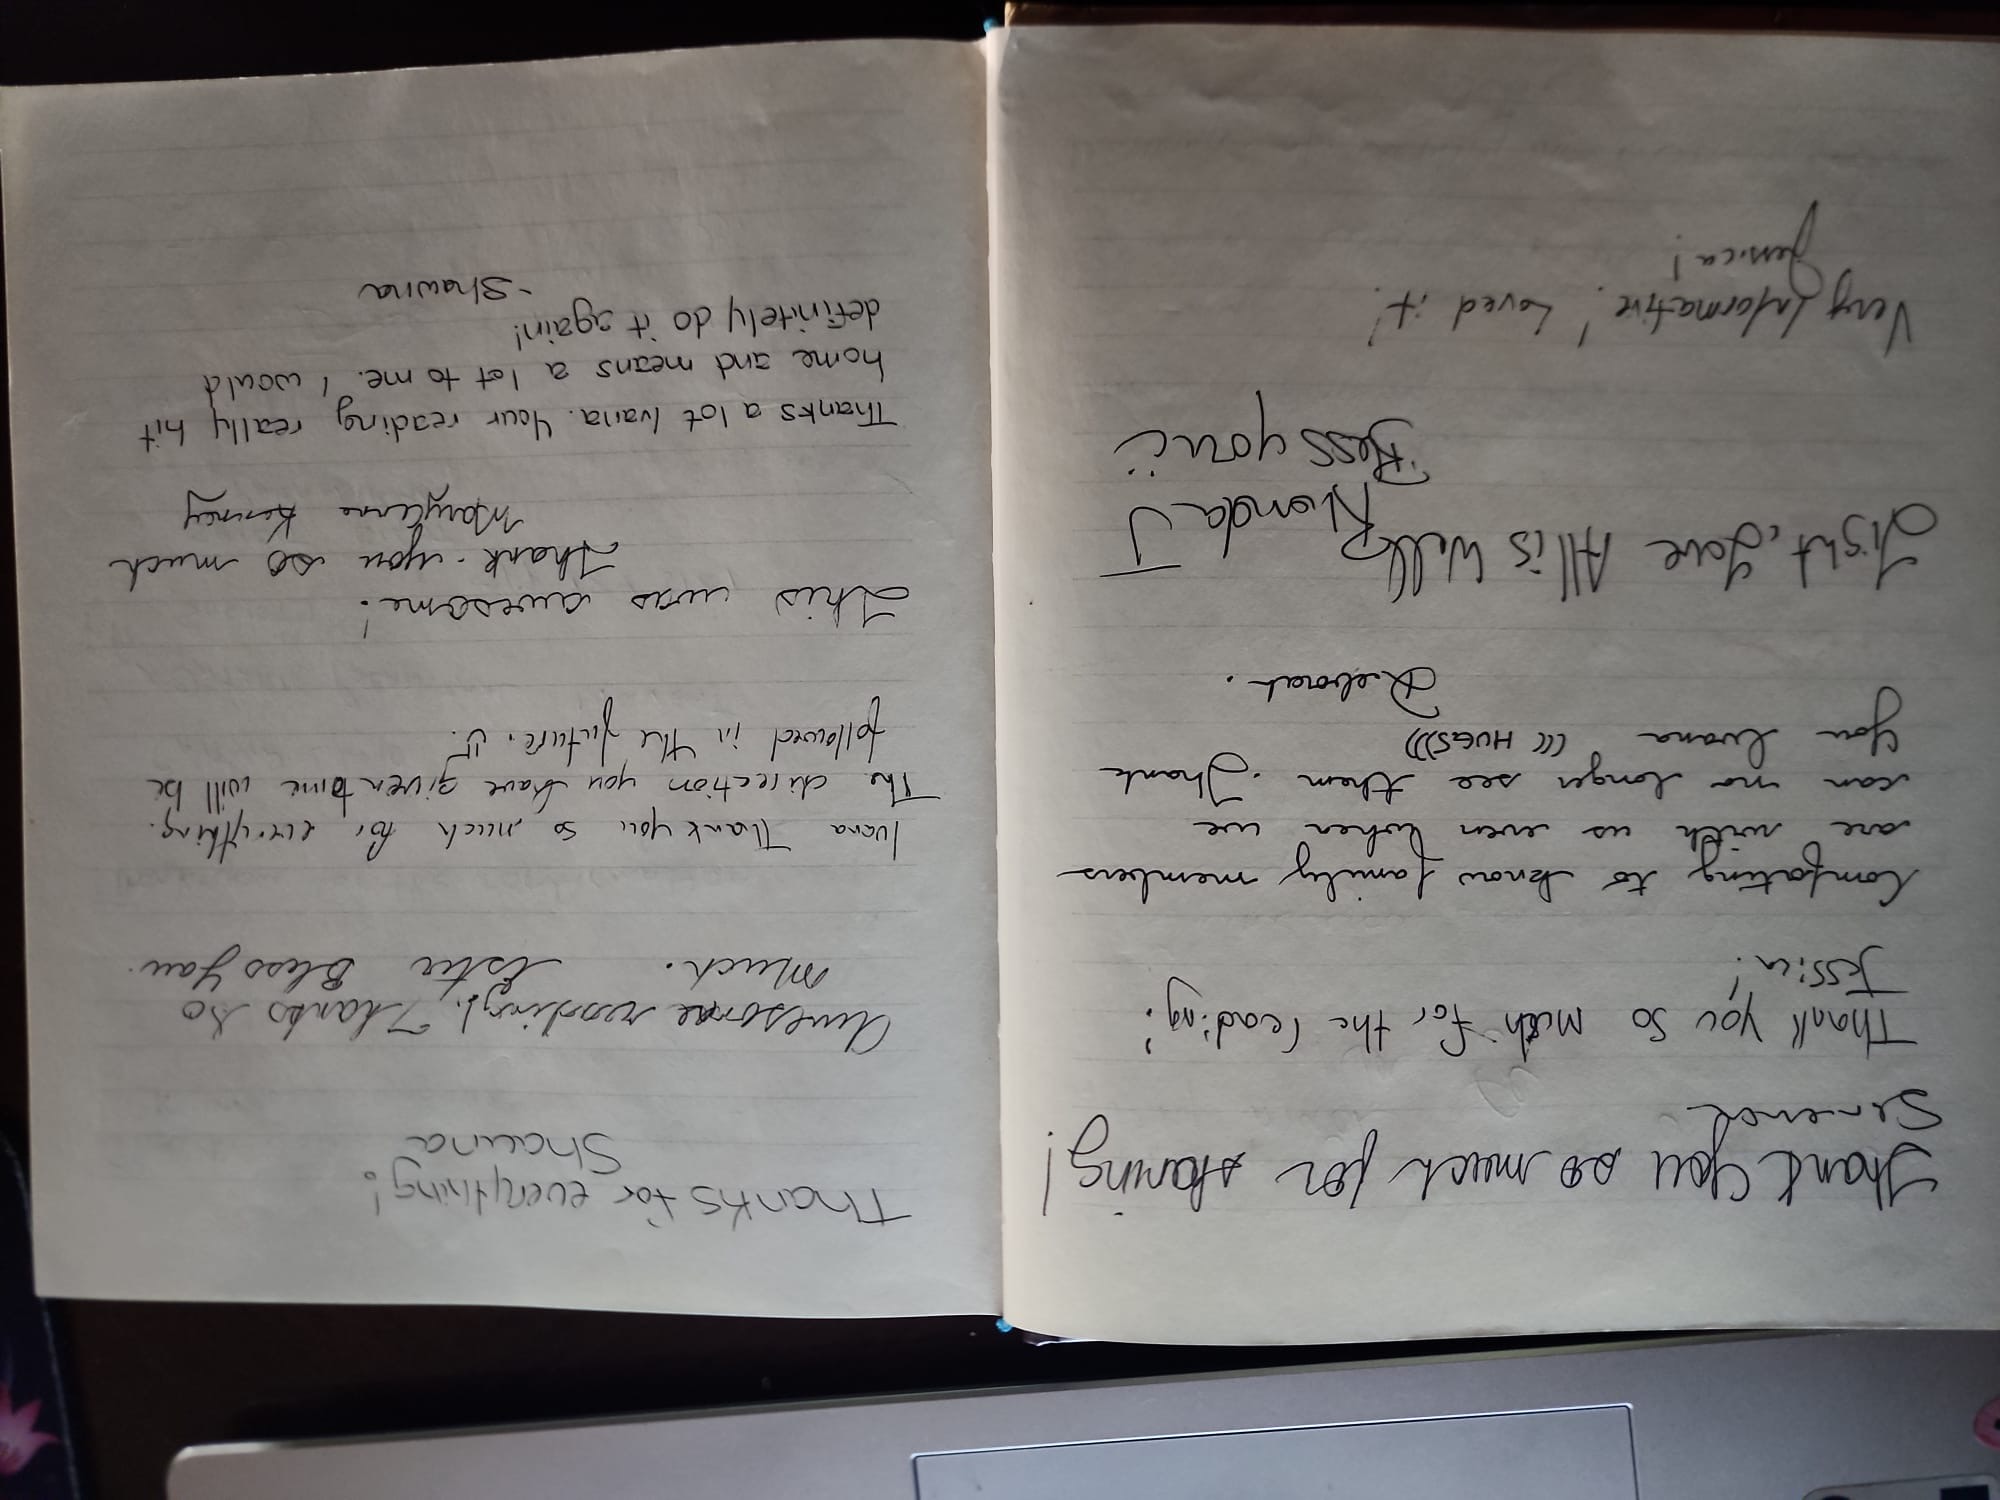 Thank you so much for sharing!
Thank you so much for the reading!
Jessica!
Comforting to know family members
are with us even when we
can no longer see them. Thank
you Ivana ((( HUGS)))
Deborah.
Light, Love All is Well
Rhonda J
Bless you
Very Informative! Loved it!
Jessica!
Thanks for everything!
Shauna
Awesome reading! Thanks so
much. Bless You.
Ivana Thank you so much for everything.
The direction you have given me will be
followed in the future.
This was awesome!
Thank-you so much
MaryAnne
Thanks a lot Ivana. Your reading really hit
home and means a lot to me. I would
definitely do it again!
-Shawna